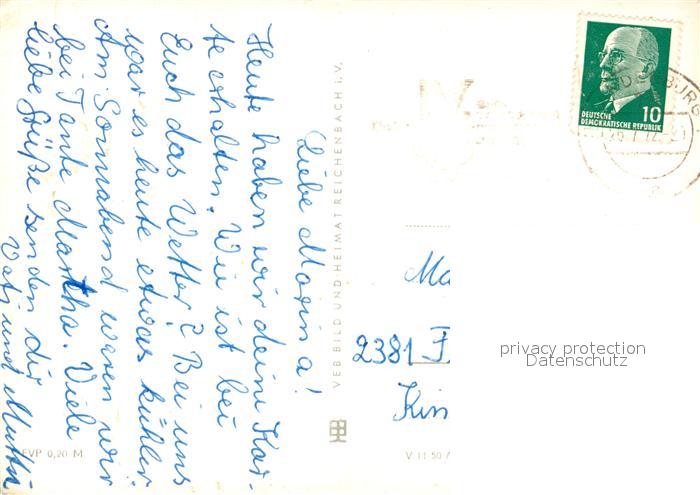 Liebe Marina!
Heute haben wir deine Kar-
te erhalten. Wie ist bei
Euch das Wetter? Bei uns
war es heute etwas kühler.
Am Sonnabend waren wir
bei Tante Martha. Viele
liebe Grüße senden dir
Vati und Mutti
EVP 0,20 M
VEB BILD UND HEIMAT REICHENBACH I. V.
V 11 50 /
DEUTSCHE
DEMOKRATISCHE REPUBLIK
10
Ma
2381 F
Kin
privacy protection
Datenschutz